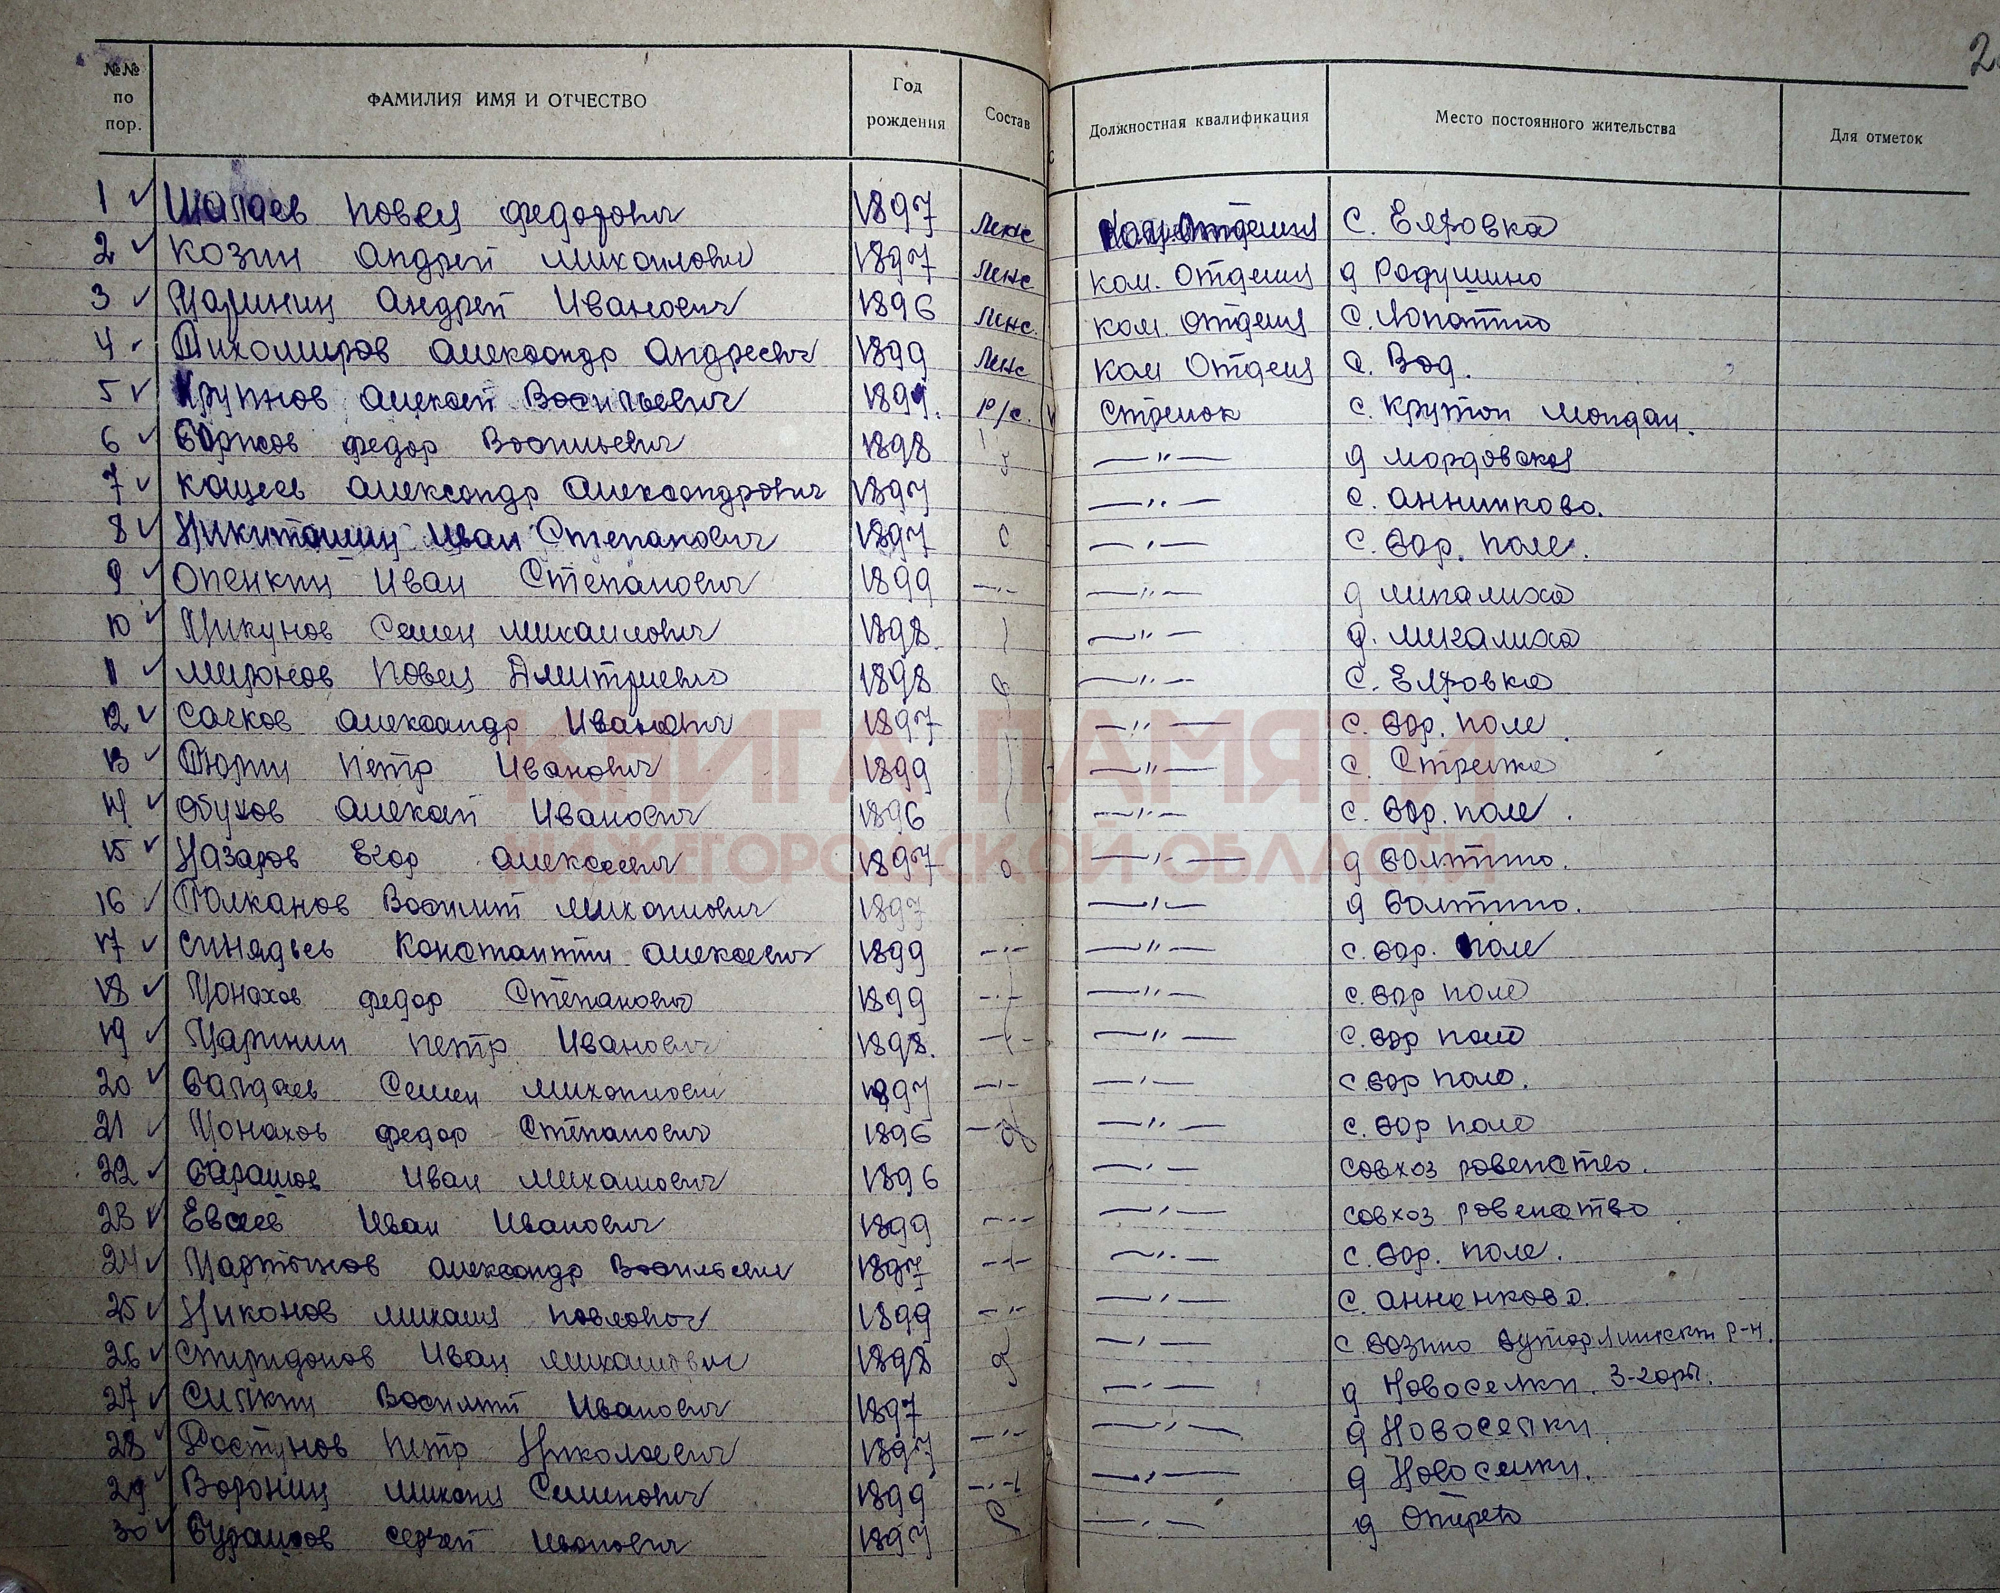 2
№№ по пор. ФАМИЛИЯ ИМЯ И ОТЧЕСТВО Год рождения Состав Должностная квалификация Место постоянного жительства Для отметок
1 Шалаев Павел Федорович 1897 Мнс Ком. Отделен с. Елховка
2 Козин Андрей Михайлович 1897 Мнс ком. Отделен д Радушино
3 Маринин Андрей Иванович 1896 Мнс. ком. Отделен с. Лопатино
4 Тихомиров Александр Андреевич 1899 Мнс ком Отделен с. Вад.
5 Крупнов Алексей Васильевич 1899. Р/с. Стрелок с. Крутой Майдан.
6 Борисов Федор Васильевич 1898 —"— д Мордовская
7 Кащеев Александр Александрович 1897 —"— с. Анненково.
8 Никиташин Иван Степанович 1897 —"— с. Вар. поле.
9 Опенкин Иван Степанович 1899 —"— —"— д Мигалиха
10 Цикунов Семен Михаилович 1898. —"— д. Мигалиха
11 Миронов Павел Дмитриевич 1898 —"— с. Елховка
12 Сачков Александр Иванович 1897 —"— с. Вар. поле.
13 Тюрин Петр Иванович 1899 —"— с. Стрелка
14 Обухов Алексей Иванович 1896 —"— с. Вар. поле.
15 Назаров Егор Алексеевич 1897 —"— д Болтино.
16 Полканов Василий Михайлович 1897 —"— д Болтино.
17 Синядьев Константин Алексеевич 1899 —"— —"— с. Вар. Поле
18 Монахов Федор Степанович 1899 —"— —"— с. Вар поле
19 Маринин Петр Иванович 1898. —"— —"— с. Вар поле
20 Балдаев Семен Михайлович 1897 —"— —"— с. Вар поле.
21 Монахов Федор Степанович 1896 —"— —"— с. Вар поле
22 Барашов Иван Михаилович 1896 —"— совхоз равенство.
23 Евсеев Иван Иванович 1899 —"— —"— совхоз равенство
24 Мартынов Александр Васильевич 1897 —"— —"— с. Вар. поле.
25 Никонов Михаил Павлович 1899 —"— —"— с. Анненково.
26 Спиридонов Иван Михаилович 1898 —"— с Р-н.
27 Силкин Василий Иванович 1897 —"— д Новоселки.
28 Ростунов Петр Николаевич 1897 —"— —"— д Новоселки.
29 Воронин Михаил Семенович 1899 —"— —"— д Новоселки.
30 Бурашов Сергей Иванович 1897 —"— д
КНИГА ПАМЯТИ
НИЖЕГОРОДСКОЙ ОБЛАСТИ